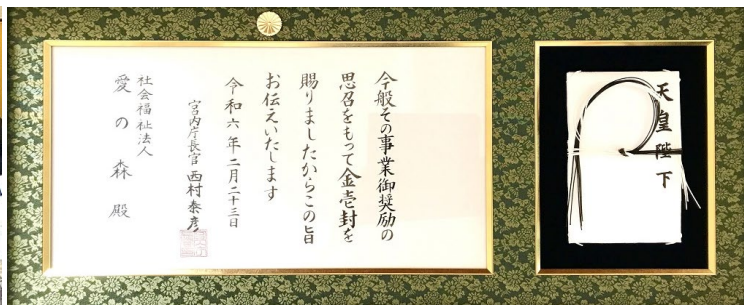 今般その事業御奨励の
思召をもって金壱封を
賜りましたからこの旨
お伝えいたします
令和六年二月二十三日
宮内庁長官 西村泰彦
社会福祉法人
愛の森 殿
天皇陛下